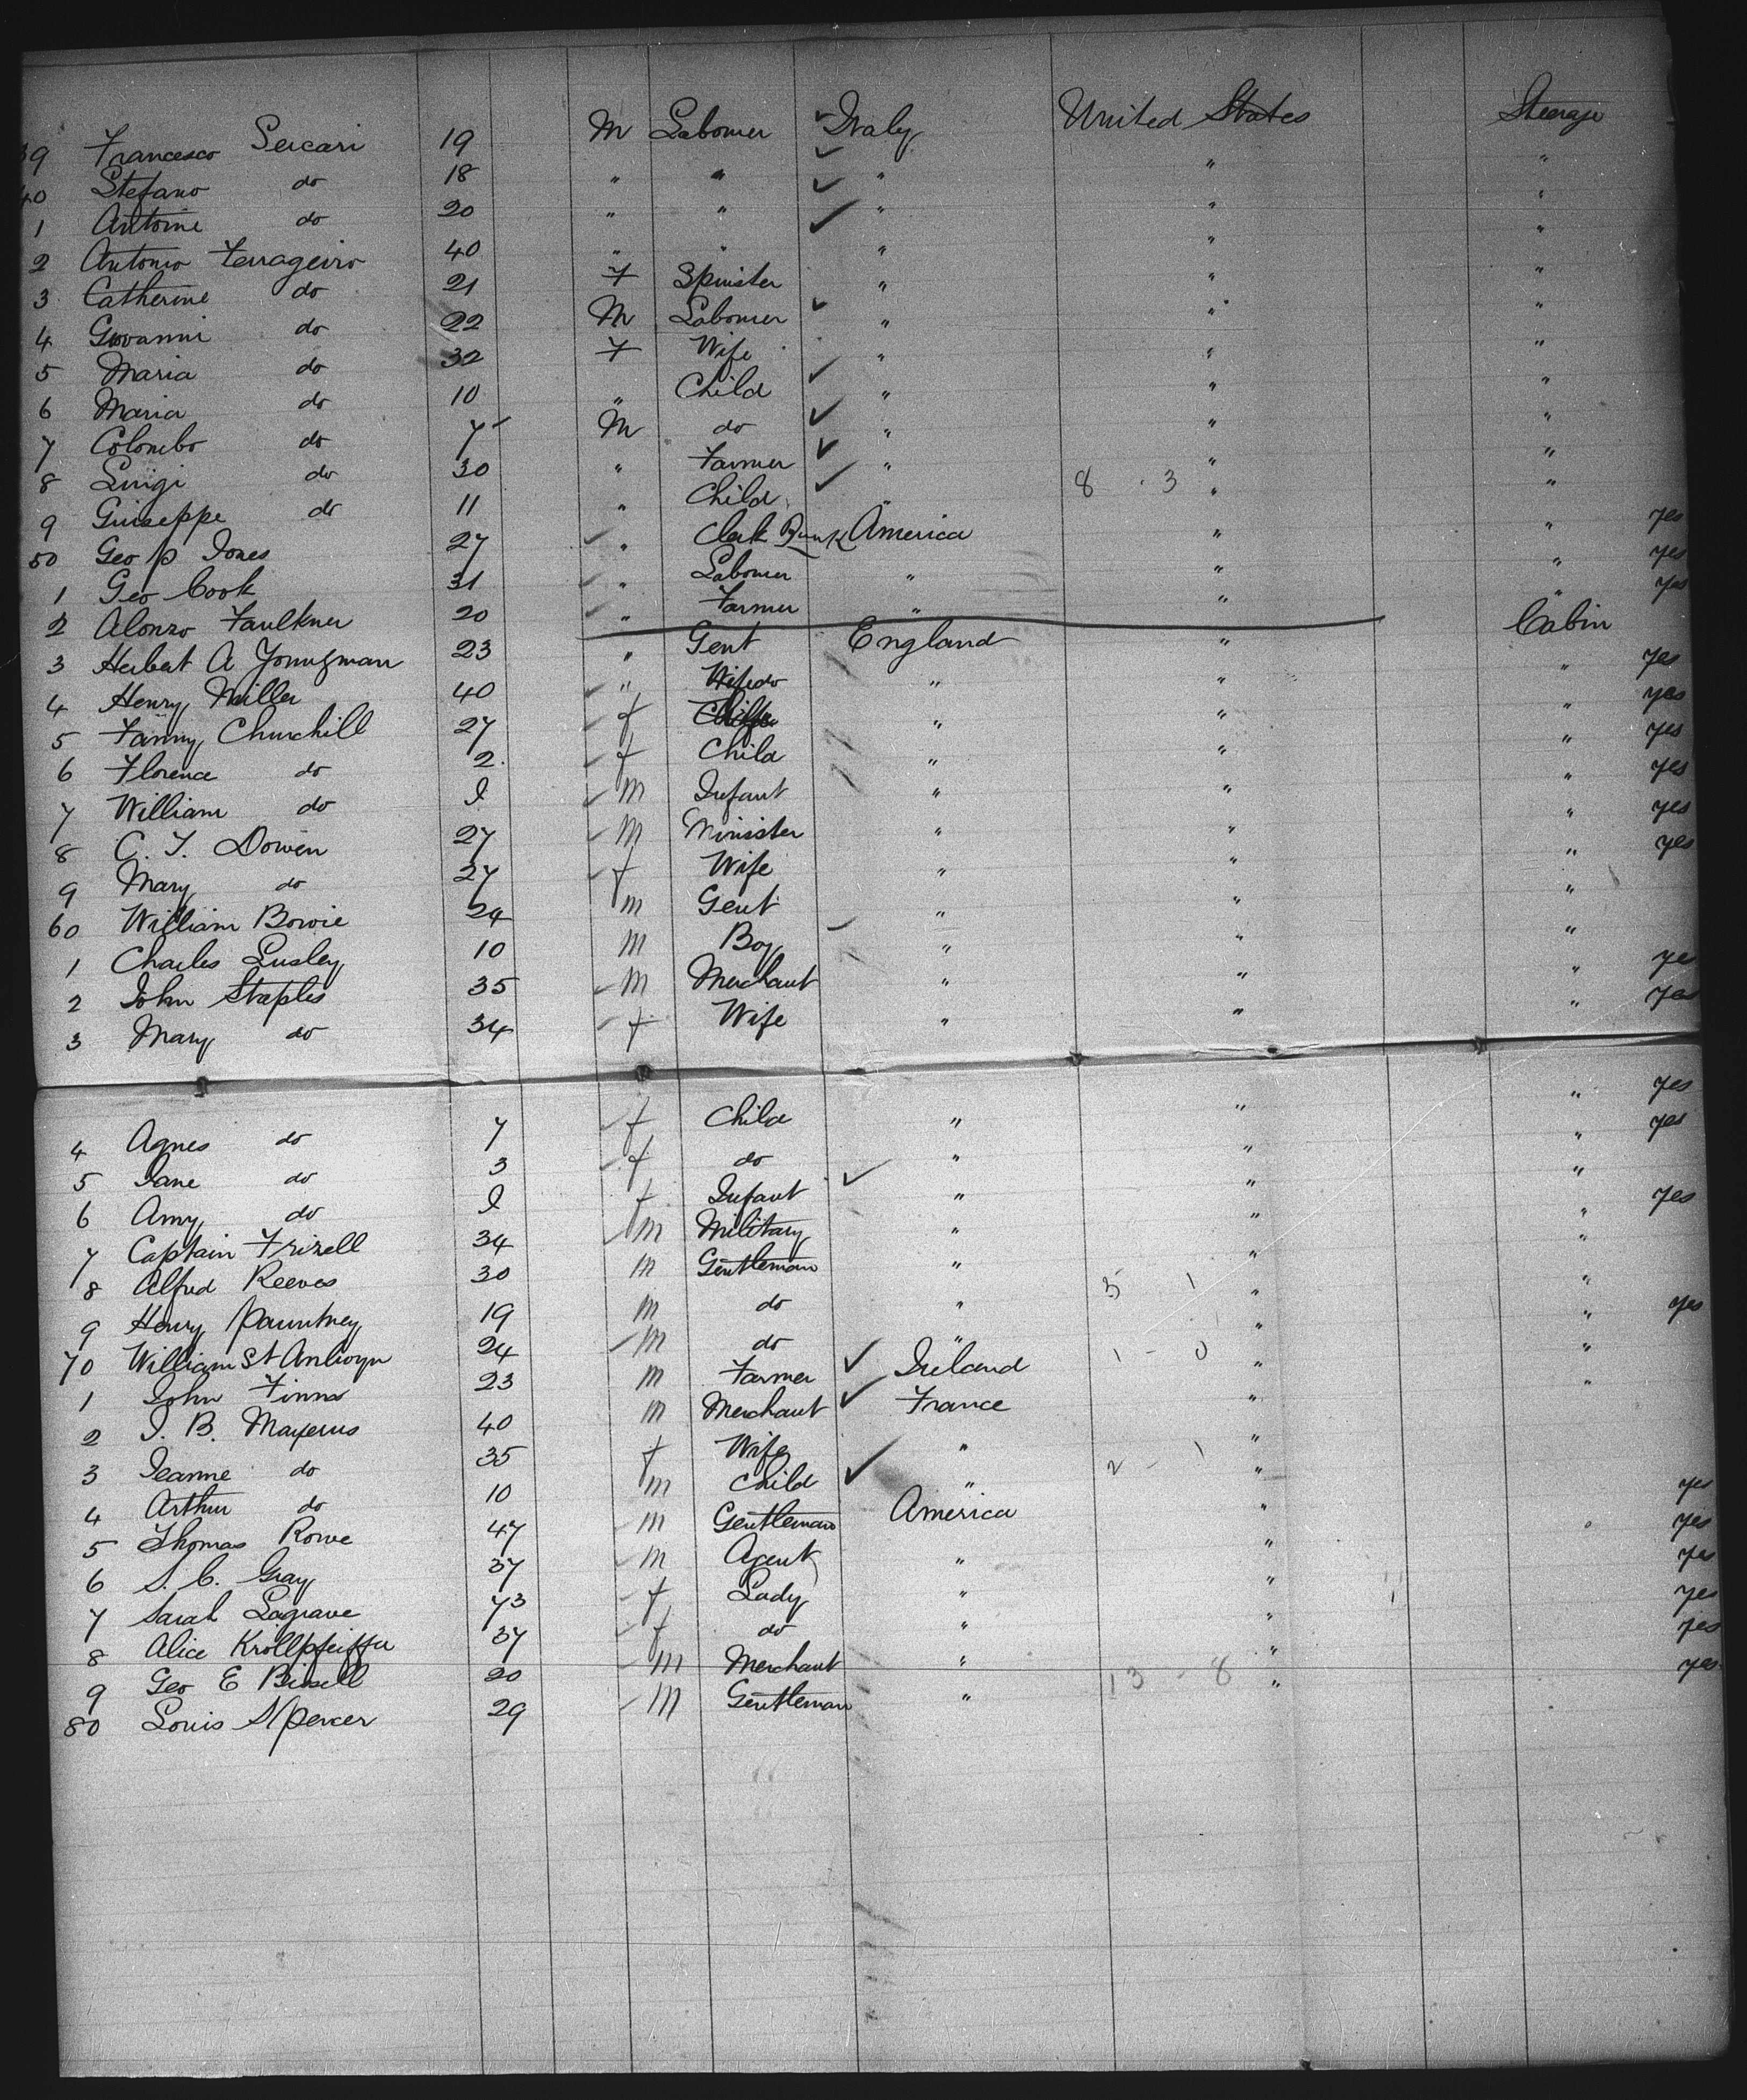 39 Francesco Sercari 19 M Labourer Italy United States Steerage
40 Stefano do 18 " " " " "
1 Antoine do 20 " " " " "
2 Antonio Ferrageiro 40 " " " " "
3 Catherine do 21 F Spinster " " "
4 Giovanni do 22 M Labourer " " "
5 Maria do 32 F Wife " " "
6 Maria do 10 " Child " " "
7 Colombo do 7 M do " " "
8 Luigi do 30 " Farmer " " "
9 Guiseppe do 11 " Child " 8 . 3 " "
50 Geo P Jones 27 " Clerk Bank America " " yes
1 Geo Cook 31 " Labourer " " " yes
2 Alonzo Faulkner 20 " Farmer " " " yes
3 Herbert A Youngman 23 " Gent England " Cabin
4 Henry Miller 40 " do " " " yes
5 Fanny Churchill 27 f Wife " " " yes
6 Florence do 2 f Child " " " yes
7 William do I M Infant " " " yes
8 C. T. Dowen 27 M Minister " " " yes
9 Mary do 27 f Wife " " " yes
60 William Bowie 24 m Gent " " "
1 Charles Lusley 10 M Boy " " "
2 John Staples 35 M Merchant " " " yes
3 Mary do 34 f Wife " " " yes
4 Agnes do 7 f Child " " " yes
5 Jane do 3 f do " " " yes
6 Amy do I f Infant " " "
7 Captain Frizell 34 m Military " " " yes
8 Alfred Reeves 30 m Gentleman " " "
9 Henry Pauntney 19 m do " 5 1 " "
70 William St Anlwyn 24 M do " " " yes
1 John Finns 23 m Farmer Ireland 1 - 0 " "
2 J. B. Mayerus 40 m Merchant France " "
3 Jeanne do 35 f Wife " "
4 Arthur do 10 m Child " 2 - 1 "
5 Thomas Rowe 47 m Gentleman America " yes
6 S. C. Gray 37 m Agent " " yes
7 Sarah Lagrave 73 f Lady " " yes
8 Alice Kröllpfeiffer 37 f do " " yes
9 Geo E Bissell 20 m Merchant " " yes
80 Louis Spencer 29 M Gentleman " 13 - 8 " yes